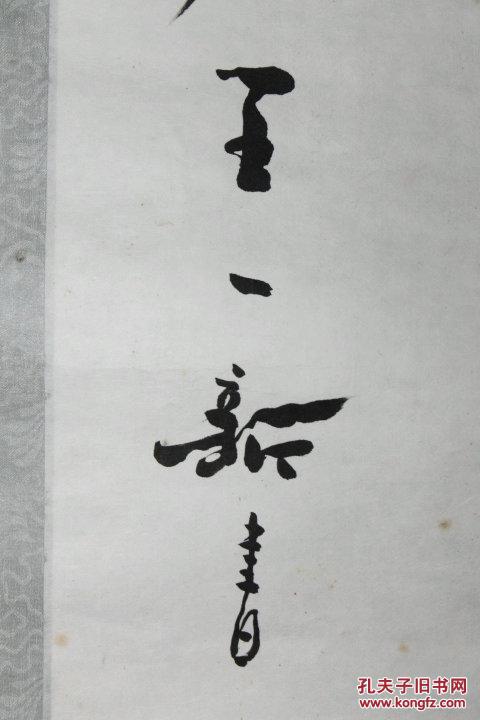 王一新書
孔夫子旧书网
www.kongfz.com